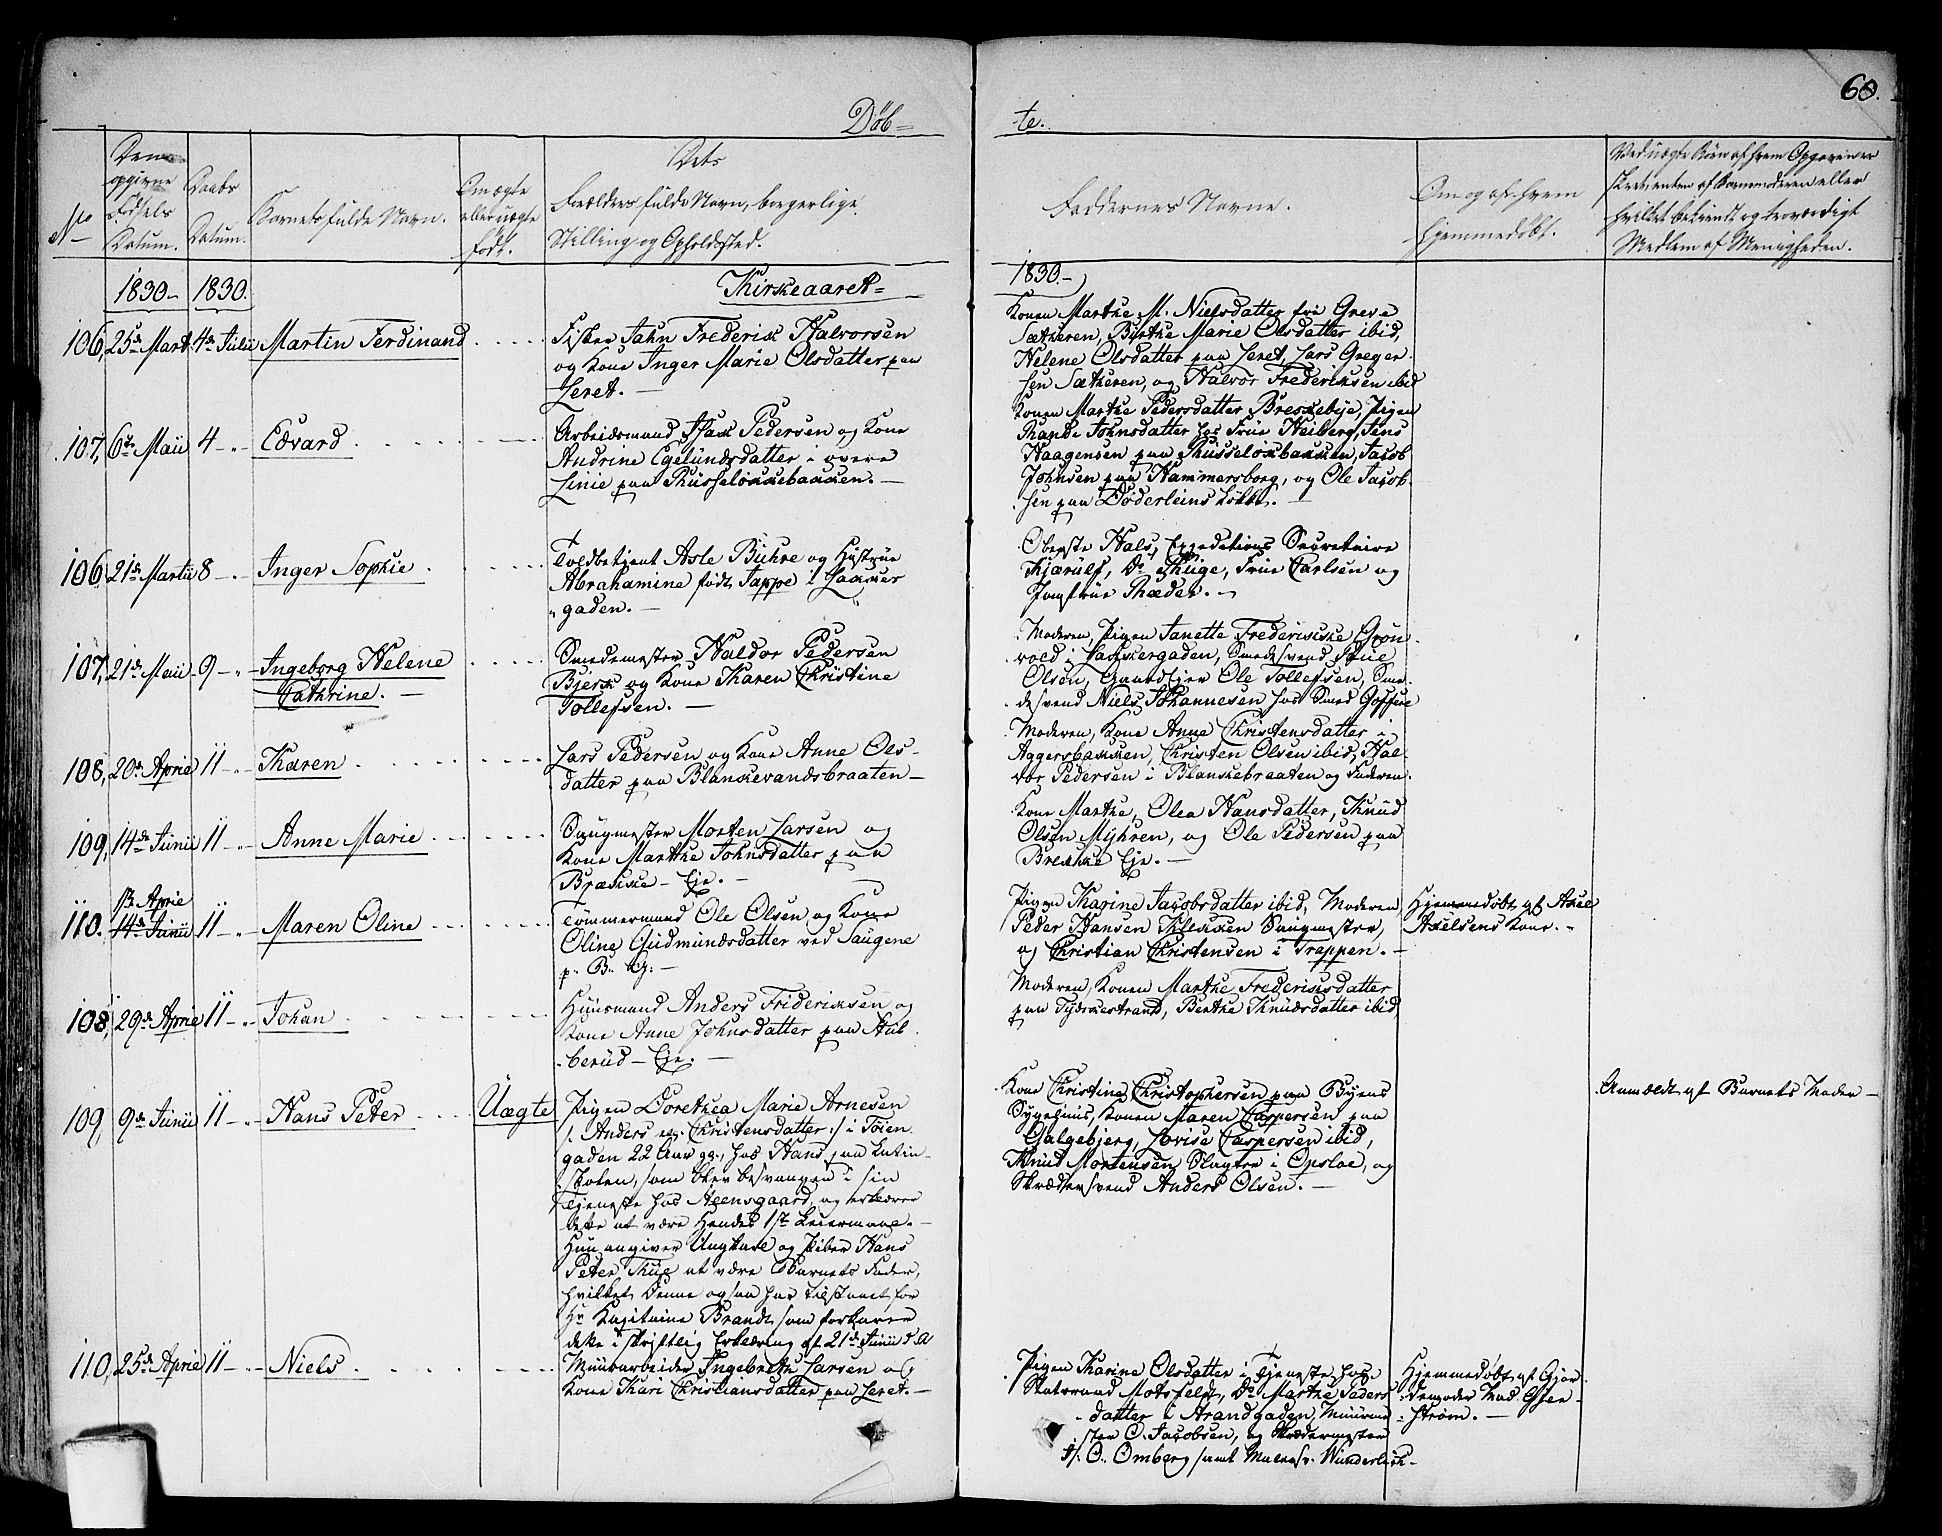 60.
Døb=
te.
No
Den
opgivne
Fødsels
Datum.
Daabs
Datum.
Barnets fulde Navn.
Om ægte
eller uægte
født.
Dets
Forældres fulde Navn, borgerlige
Stilling og Opholdssted.
Faddernes Navne.
Om og af hvem
hjemmedøbt.
Ved uægte Børn af hvem Opgaven er
skeet, enten af Barnemoderen eller
hvilket bekiendt og troværdigt
Medlem af Menigheden.
1830 - 1830.
Kirkeaaret =
1830. -
106, 25de Mart. 4de Julii Martin Ferdinand
Fisker Jahn Frederik Halvorsen
og Kone Inger Marie Olsdatter paa
Leret. -
Konen Marthe M. Nielsdatter fri Greve
Sætheren, Birthe Marie Olsdatter ibid,
Helene Olsdatter paa Leret, Lars Greger-
sen Sætheren, og Halvor Frederiksen ibid
107, 6te Maii 4 - " - Edvard
Arbeidsmand Isak Pedersen og Kone
Andrine Egelundsdatter i øvere
Linie paa Ruseløkkebakken. -
Konen Marthe Pedersdatter Brekkebye, Pigen
Rande Johnsdatter hos Frue Heiberg, Jens
Haagensen paa Russeløkbakken, Jacob
Johnsen paa Hammersborg, og Ole Jacob-
sen paa Døderleins Løkke. -
106 21de Martii 8 - " - Inger Sophie
Toldbetjent Asle Buhre og Hustrue
Abrahamine født Tappe i Lakker
" gaden. -
Oberste Hals, Expeditions Secretaire
Kjærulf, Do Kluge, Frue Carlsen og
Jomfrue Ræder. -
107, 21de Maii 9 - " - Ingeborg Helene
Cathrine. -
Smedemester Haldor Pedersen
Bjerk og Kone Karen Christine
Tollefsen. -
Moderen, Pigen Janette Frederikke Grøn-
vold i Lakkergaden, Smedsvend
Olsen, Gaardejer Ole Tollefsen, Sme-
desvend Niels Johannesen hos Smed
108, 20de April 11 - " - Karen
Lars Pedersen og Kone Anne Ols-
datter paa Blankevandsbraaten -
Moderen, Kone Anne Christensdatter i
Aggersbakken, Christen Olsen ibid, Hal-
vor Pedersen i Blankebraaten og Faderen.
109, 14de Junii 11 - " - Anne Marie
Saugmester Morten Larsen og
Kone Marthe Johnsdatter paa
Brække - Eje. -
Kone Marthe, Olea Hansdatter, Knud
Olsen Myhren, og Ole Pedersen paa
Brekke Eje. -
110. 13 April
14de Junii 11 - " - Maren Oline
Tømmermand Ole Olsen og Kone
Oline Gudmundsdatter ved Saugene
p. B. Ej: -
Pigen Karine Jacobsdatter ibid, Moderen,
Peder Hansen Klekken Saugmester,
og Christian Christensen i Trappen. -
Hjemmedøbt af Axel
Axelsens Kone. -
108, 29de April 11 - " - Johan
Huusmand Anders Frideriksen og
Kone Anne Johnsdatter paa Aal-
berud - Eje. -
Moderen, Konen Marthe Frederiksdatter
paa Tydskestrand, Berthe Knudsdatter ibid,
109, 9de Junii 11 - " - Hans Peter
Uægte
Pigen Dorethea Marie Arnesen
/: Anders eg. Christensdatter :/ i Tøien
gaden 22 Aar gg., hos Hans paa Latin-
skolen, som blev besvangen i sin
Tjeneste hos Aeensgaard, og erklærer
dette at være Hendes 1ste Leiermaal. -
Hun angiver Ungkarl og Piber Hans
Peter Thue at være Barnets Fader,
hvilket Denne ogsaa har tilstaaet for
Hr Kapitaine Brandt, som forklarer
dette i skriftlig Erklæring af 21de Junii d. A
Kone Christine Christophersen paa Byens
Sygehuus, Konen Maren Caspersen paa
Galgebjerg, Lovise Caspersen ibid,
Knud Mortensen Slagter i Opsloe, og
Skrædersvend Anders Olsen. -
Anmeldt af Barnets Moder -
110, 25de April 11 - " - Niels
Muurarbeider Ingebreth Larsen og
Kone Kari Christiansdatter paa Leret. -
Pigen Karine Olsdatter i Tjeneste hos
Statsraad Motsfeldt, Do Marthe Peders
datter i Strandgaden, Muurme-
ster C. Jacobsen, og Skrædermester
C. Omberg samt Malersv. Wunderlich -
Hjemmedøbt af Gjor-
demoder Mad
strøm. -